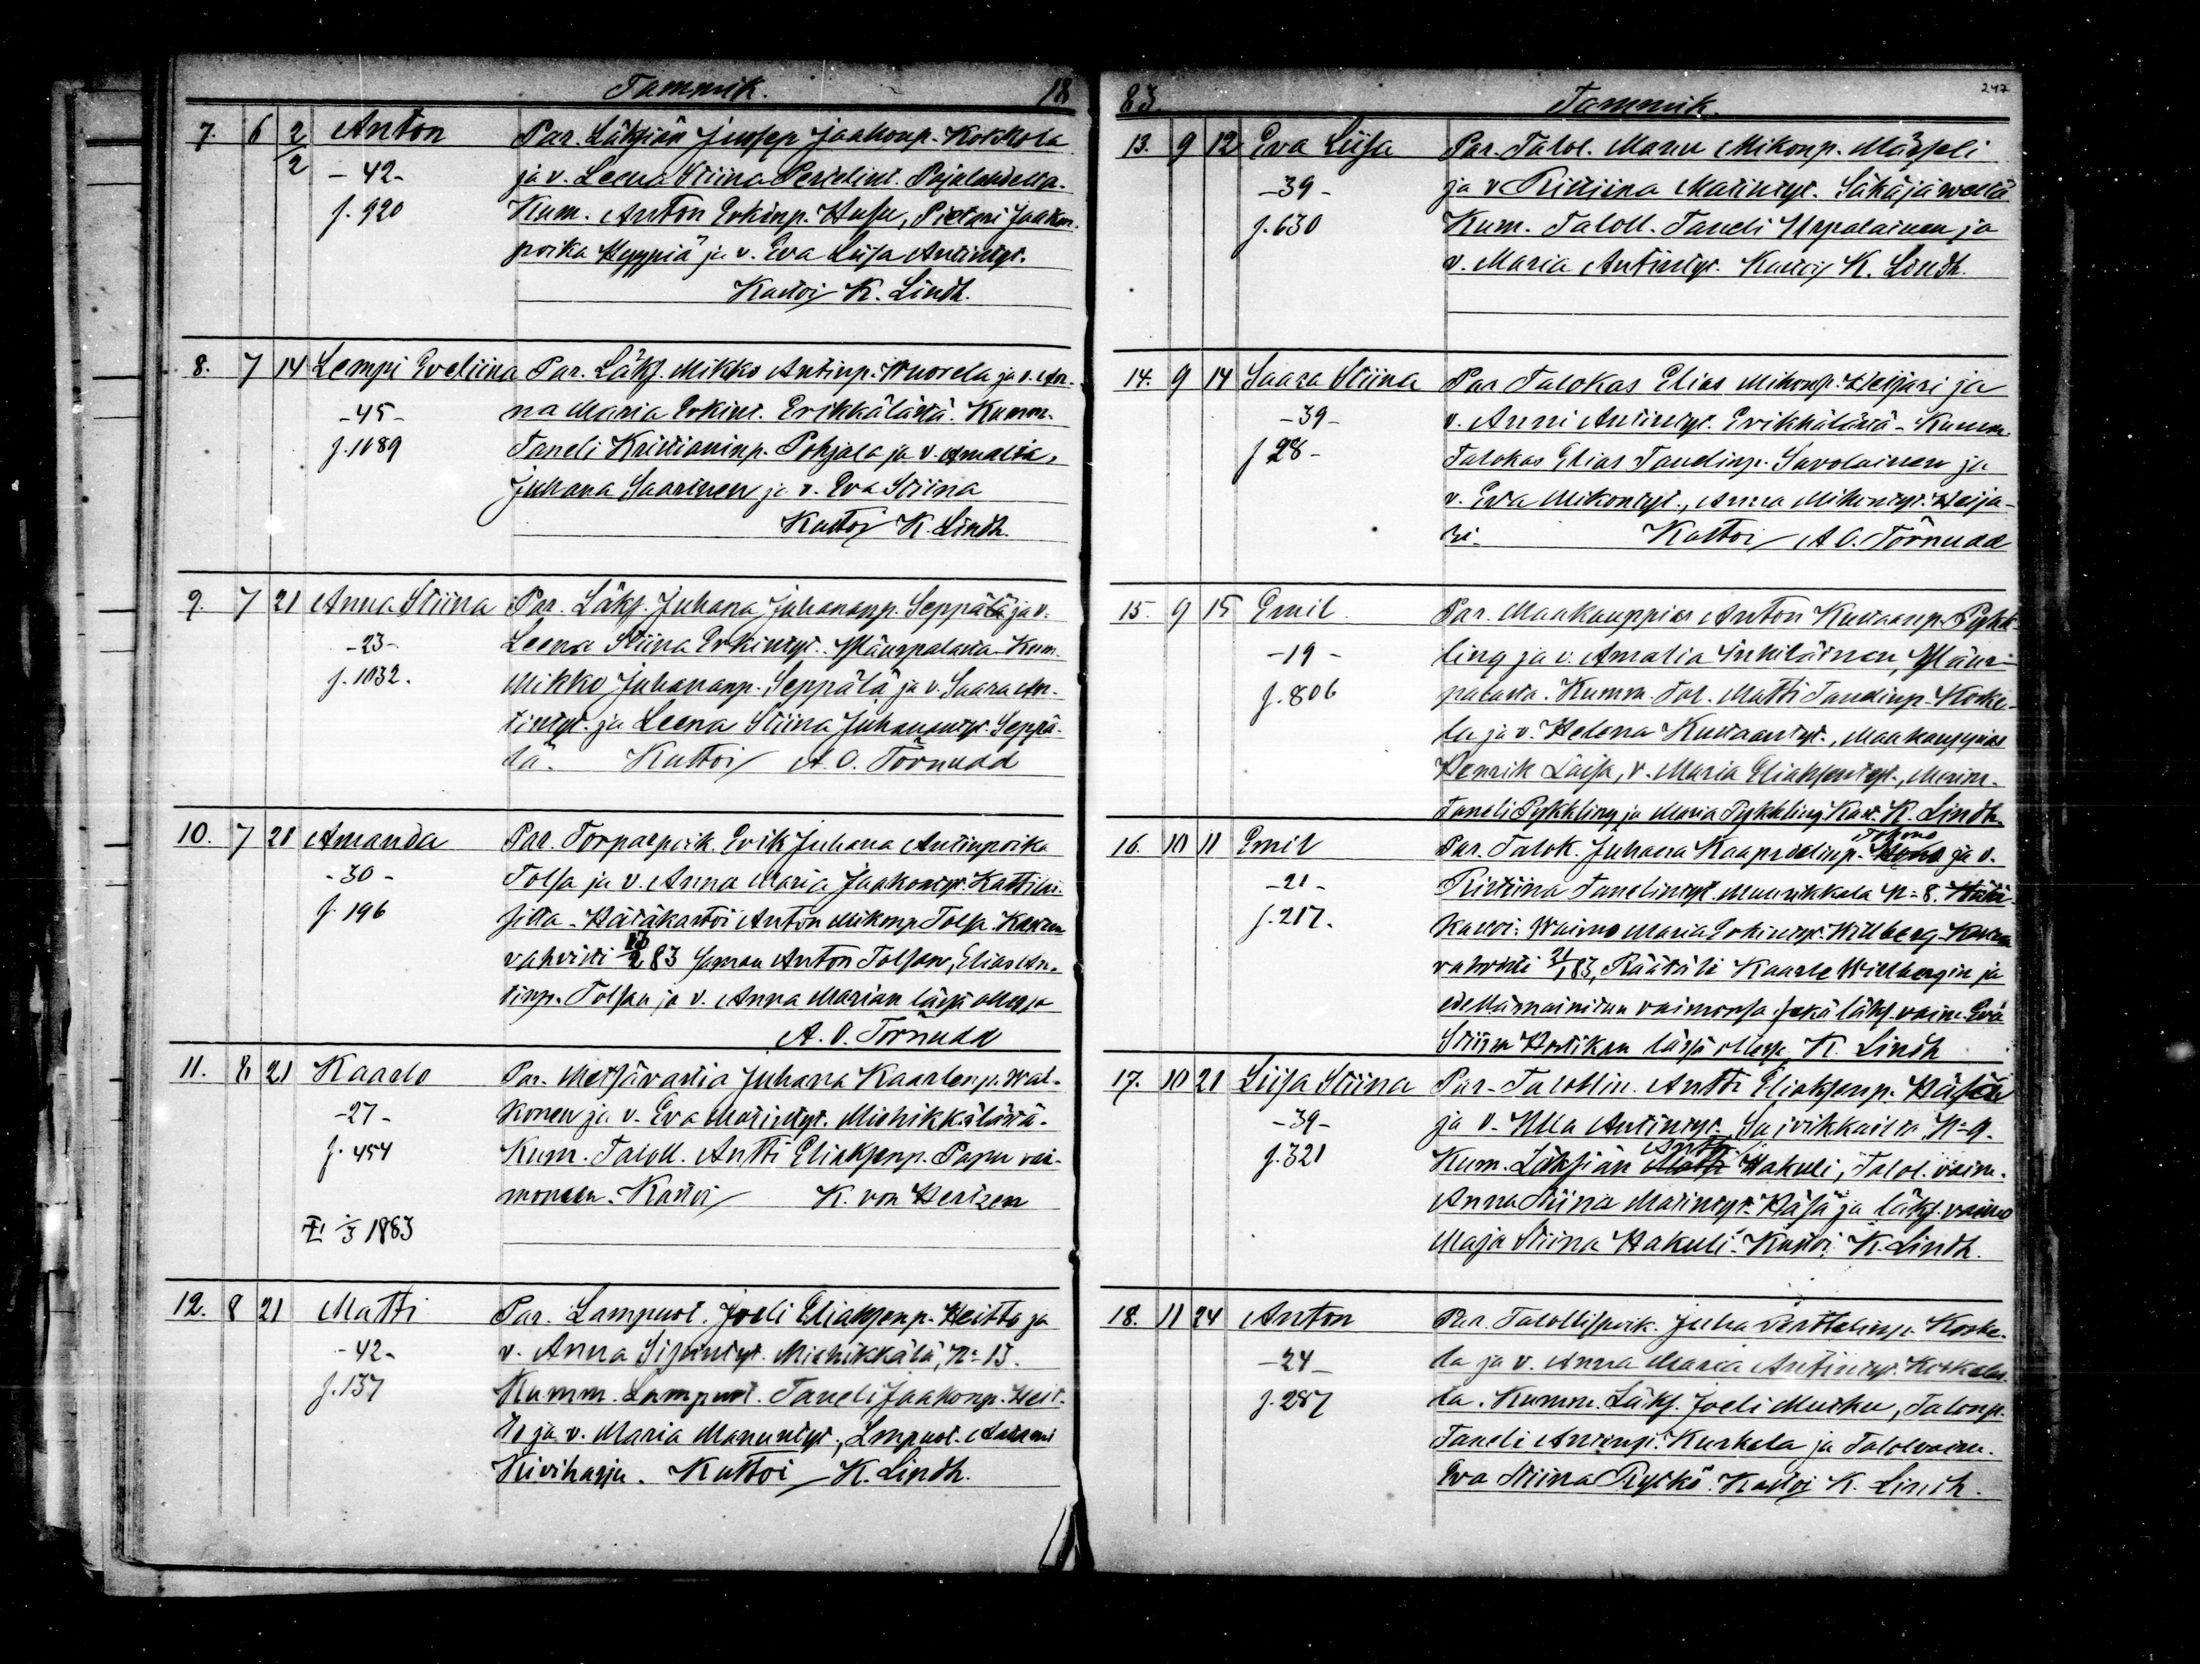 Tammik. 18
7. 6 2/2 Anton Par. Läksiän Jussep Jaakonp. Kokkola
- 42 - ja v. Leena Stiina Pertelint.
f. 920 Kum. Anton Erkinp. Husu, Pietari Jaakon
poika Hyyppiä ja v. Eva Liisa Antintyt.
Kastoi K. Lindh.
8. 7 14 Lempi Eveliina Par. Läks. Mikko Antinp. Wuorela ja v. An-
- 45 - na Maria Erkint. Erikkälästä. Kumm.
f. 1089 Taneli Kristianinp. Pohjala ja v. Amalia,
Juhana Saarinen ja v. Eva Stiina
Kastoi K. Lindh.
9. 7 21 Anna Stiina Par. Läks. Juhana Juhananp. Seppälä ja v.
- 23 - Leena Stiina Erkintyt. Kum.
f. 1032. Mikko Juhananp. Seppälä ja v. Saara An-
tintyt. ja Leena Stiina Juhanantyt. Seppä-
lä. Kastoi A. O. Törnudd
10. 7 28 Amanda Par. Torparpoik. Erik Juhana Antinpoika
- 30 - Tolsa ja v. Anna Maria Jaakontyt. Kattilai-
f. 196 sista. Hätäkastoi Anton Mikonp Tolsa. Kasteen
vahvisti 13/2 83 saman Anton Tolsan, Elias An-
tinp. Tolsan ja v. Anna Marian läsnä ollessa
A. O. Törnudd
11. 8 21 Kaarlo Par. Metsävartia Juhana Kaarlonp. Wal-
- 27 - konen ja v. Eva Matintyt. Miehikkälästä.
f. 454 Kum. Taloll. Antti Eliaksenp. Papu vai-
moneen. Kastoi K. von Hertzen
1883
12. 8 21 Matti Par. Lampuot. Joeli Eliaksenp. Heitto ja
- 42 - v. Anna Sipintyt. Miehikkälä, N:o 13.
f. 137 Kumm. Lampuot. Taneli Jaakonp. Heit-
to ja v. Maria Manuntyt., Lmpuot. Aatami
Kiviharju. Kastoi K. Lindh.
83 Tammik. 247
13. 9 12 Eva Liisa Par. Talol. Manu Mikonp. Mässeli
- 39 - ja v. Kristiina Matintyt. Säkäjärveltä
f. 630 Kum. Taloll. Taneli Urpalainen ja
v. Maria Antintyt. Kastoi K. Lindh.
14. 9 14 Saara Stiina Par Talokas Elias Mikonp. Heijari ja
- 39 - v. Anni Antintyt. Erikkälästä - Kumm.
f 28 - Talokas Elias Tanelinp. Savolainen ja
v. Eva Mikontyt., Anna Mikontyt. Heija-
ri. Kastoi A O. Törnudd
15. 9 15 Emil. Par. Maakauppias Anton Kustaanp. Pykk-
- 19 - ling ja v. Amalia Inkiläinen,
f. 806 Kumm. Tal. Matti Tanelinp. Koske-
la ja v. Helena Kustaantyt., Maakauppias
Henrik Laisa, v. Maria Eliaksentyt., Merim.
Taneli Pykkling ja Maria Pykkling Kast. K. Lindh.
16. 10 11 Emil Par. Talok. Juhana Kaaprielinp. ja v.
- 21 - Kristiina Tanelintyt. Muurikkala N:o 8. Hätä
f. 217. kastoi: Waimo Maria Erkintyt. Willberg. Kasteen
vahvisti 21/1 83, Räätäli Kaarle Willbergin ja
edellämainitun vaimonsa sekä läks. vaim. Eva
Stiina läsnä ollessa K. Lindh
17. 10 21 Liisa Stiina Par. Talollin. Antti Eliaksenp. Häsä
- 39 - ja v. Ulla Antintyt., Saivikkalta N:o 9.
f. 321 Kum. Läksiän Antti Hakuli, Talol. vaim.
Anna Stiina Matintyt. Häsä ja läks. vaimo
Maja Stiina Hakuli. Kastoi K. Lindh.
18. 11 24 Anton Par. Talollispoik. Juha Perttelinp. Koske-
- 24 - la ja v. Anna Maria Antintyt.
f. 287 Kumm. Läks. Joeli Mutku, Talonp.
Taneli Antinp. Kurkela ja Talolvaim.
Eva Stiina Rytkö. Kastoi K. Lindh.